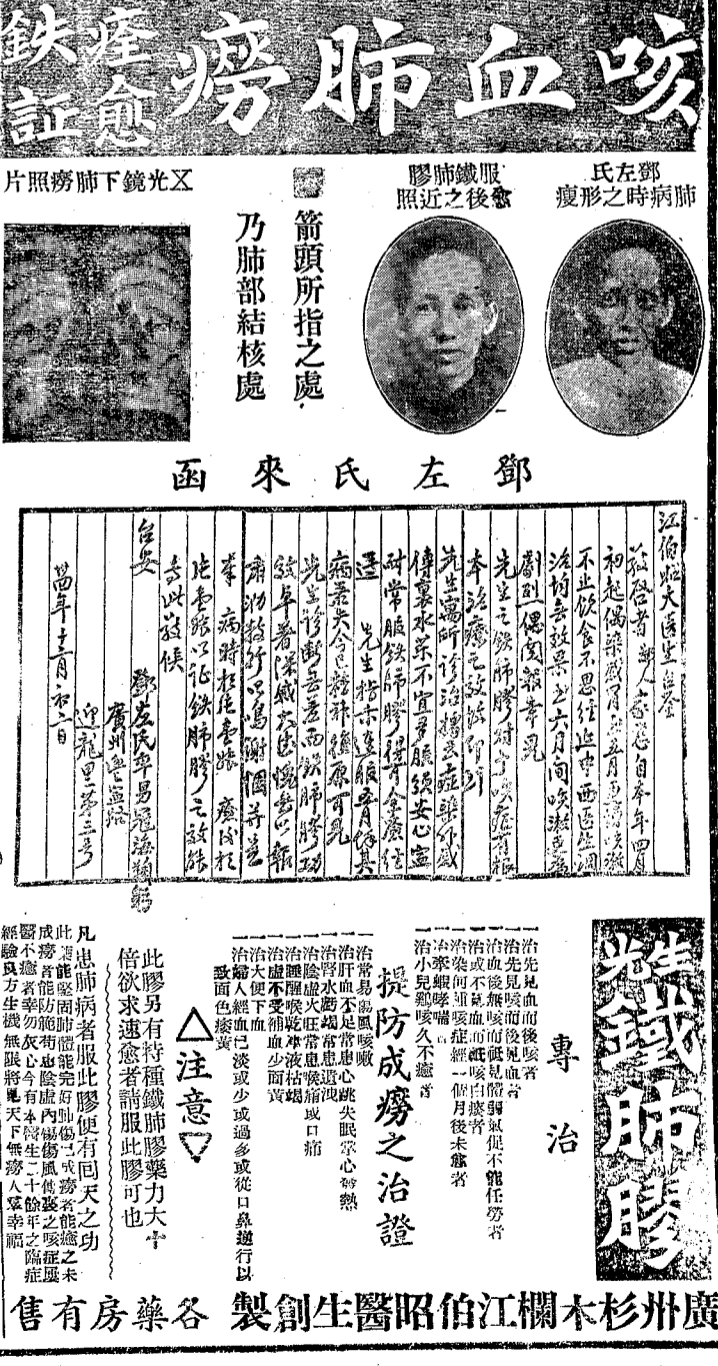 咳血肺癆
痊愈
鉄証
鄧左氏
肺病時之形瘦
服鐵肺膠
愈後之近照
箭頭所指之處
乃肺部結核處
X光鏡下肺癆照片
鄧左氏來函
江伯昭大医生台鉴
敬啓者鄙人家慈自本年四月
初起偶染感冒至五月更為咳嗽
不止飲食不思经近中西医生调
治均無效果至六月間咳嗽更為
劇烈偶閲報章見
先生之鉄肺膠对于咳症有根
本治療之效故即到
先生寓所診治據云症染外感
傳裏水菜不宜多服須安心寧
耐常服鉄肺膠得有全癒经
先生指示連服五月余其
病若失今已精神強原可見
先生診斷無差而鉄肺膠功
效卓著深感大德愧無以報
肅泐数行以鳴謝悃并差
奉病時相片壹張癒後相
片壹張以证鉄肺膠之效能
专此敬候
台安
鄧左氏率男冠海鞠躬
廣州豐寧路
迎龍里第三号
十二月初二日
生光
鐵肺膠
專治
一治先見血而後咳者
一治先見咳而後見血者
一治血後無咳而祗見體弱氣促不能任勞者
一治或不見血而祗咳白痰者
一治染何種咳症經一個月後未癒者
一治牽蝦哮喘
一治小兒鷄咳久不癒者
提防成癆之治證
一治常易傷風咳嗽
一治肝血不足常患心跳失眠掌心發熱
一治腎水虧竭常患遺洩
一治陰虛火旺常患喉痛或口痛
一治睡醒喉乾津液枯竭
一治虛不受補血少面黃
一治大便下血
一治婦人經血已淡或少或過多或從口鼻逆行以
致面色痿黃
△注意▽
此膠另有特種鐵肺膠藥力大十
倍欲求速愈者請服此膠可也
凡患肺病者服此膠便有囘天之功
此膠能堅固肺體能完好肺傷已成癆者能癒之未
成癆者能防範苟患陰虛內傷傷風傳裏之咳症屢
醫不癒者幸勿灰心今有本醫生二十餘年之臨症
經驗良方生機無限將見天下無癆人羣幸福
廣州杉木欄江伯昭醫生創製
各藥房有售